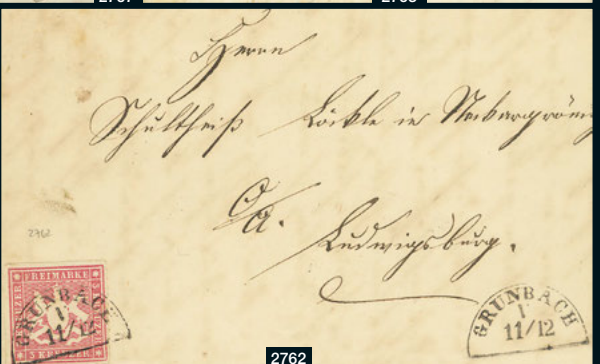 Herrn
Schultheiß Löckle in Neckargrönin
O/A.
Ludwigsburg.
2762
FREIMARKE
3 KREUZER
GRUNBACH
V
11/12
GRUNBACH
V
11/12
2762